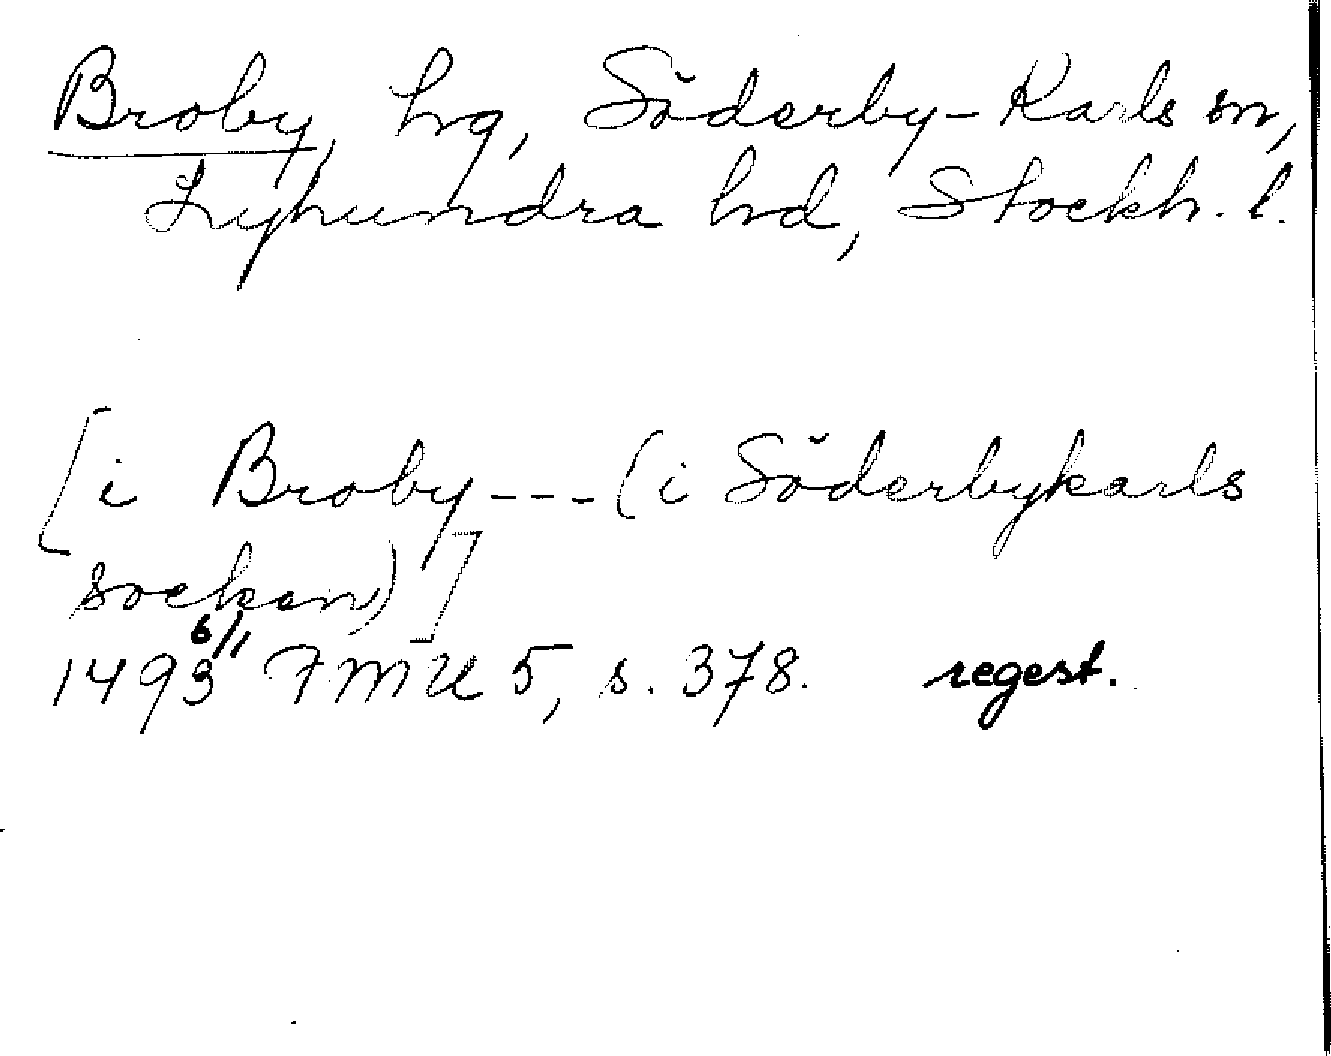 Broby, hg, Söderby-Karls sn,
Lyhundra hd, Stockh. l.
[i Broby---(i Söderbykarls
socken)]
1493 6/1 FMU 5, s. 378. regest.